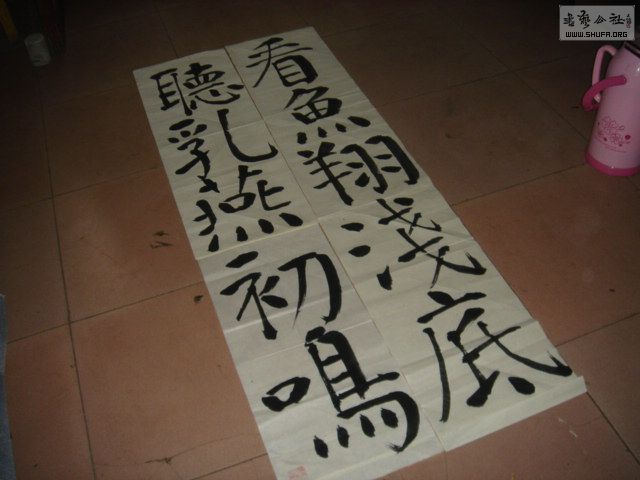 看魚翔淺底
聽乳燕初鳴
书艺公社
WWW.SHUFA.ORG